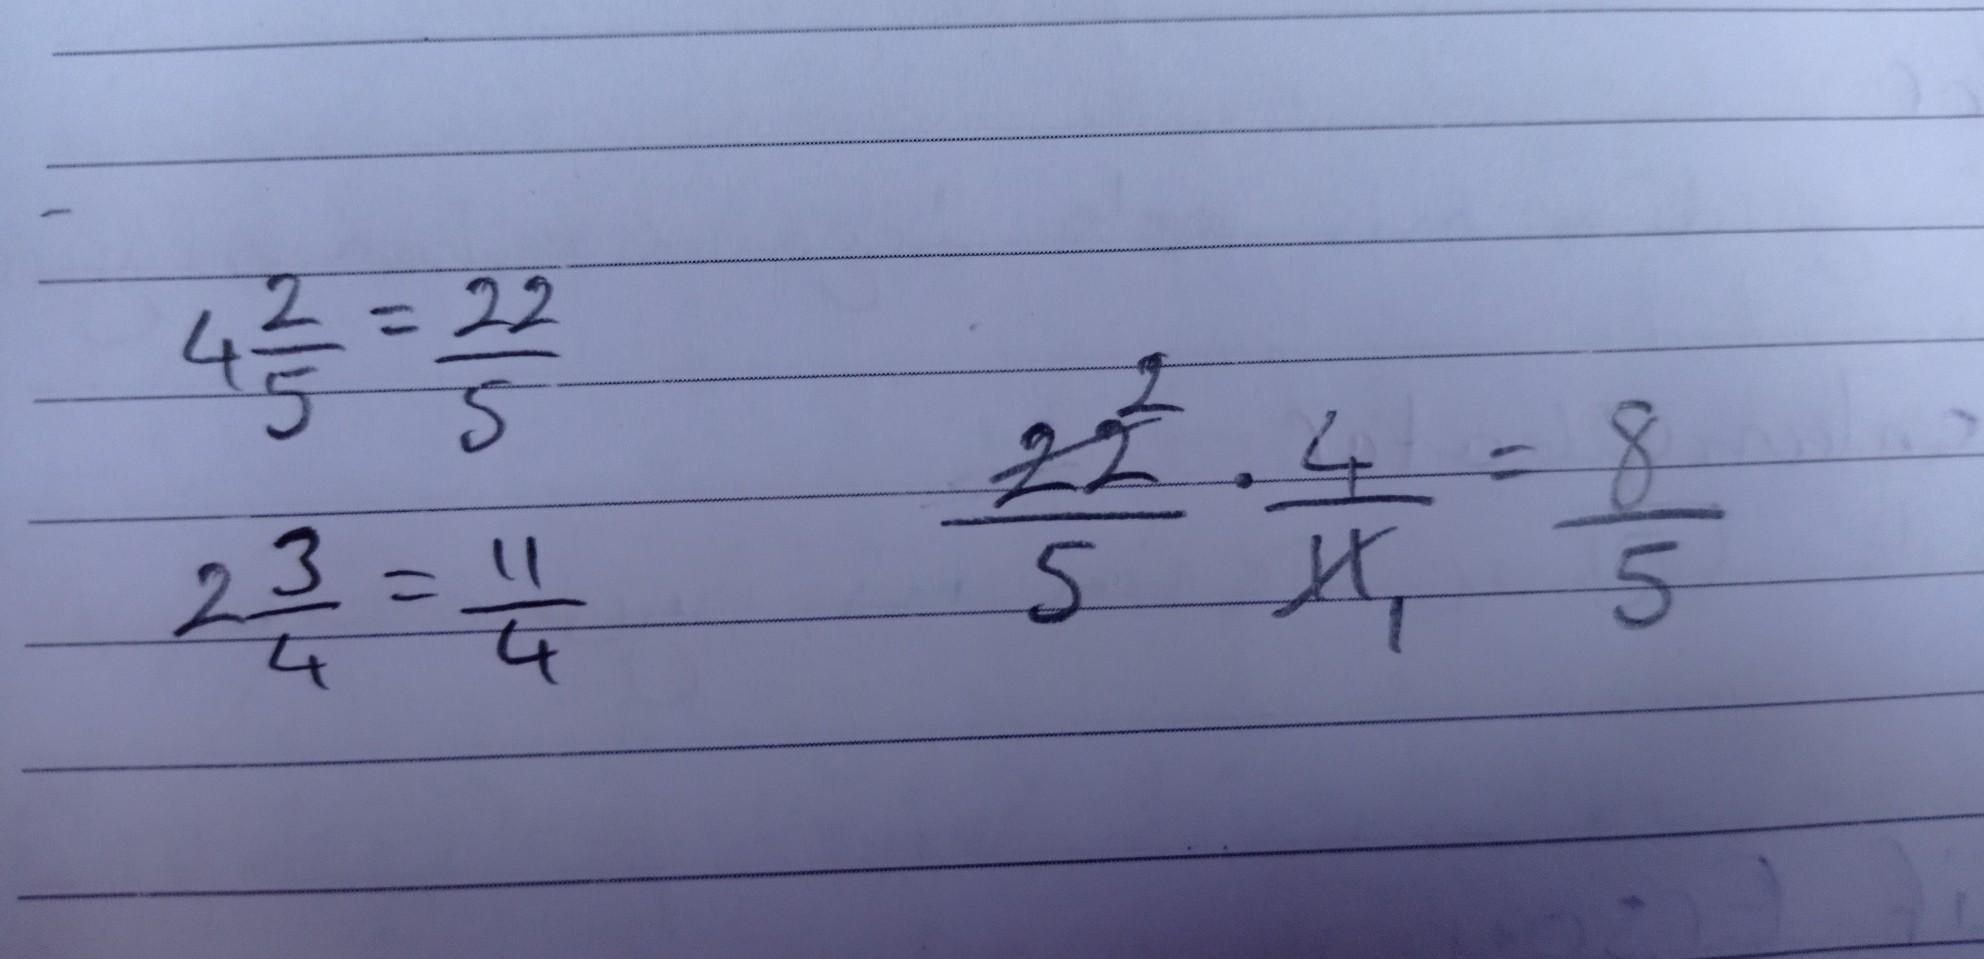 4 2/5 = 22/5
2 3/4 = 11/4
22/5 2 · 4/11 1 = 8/5